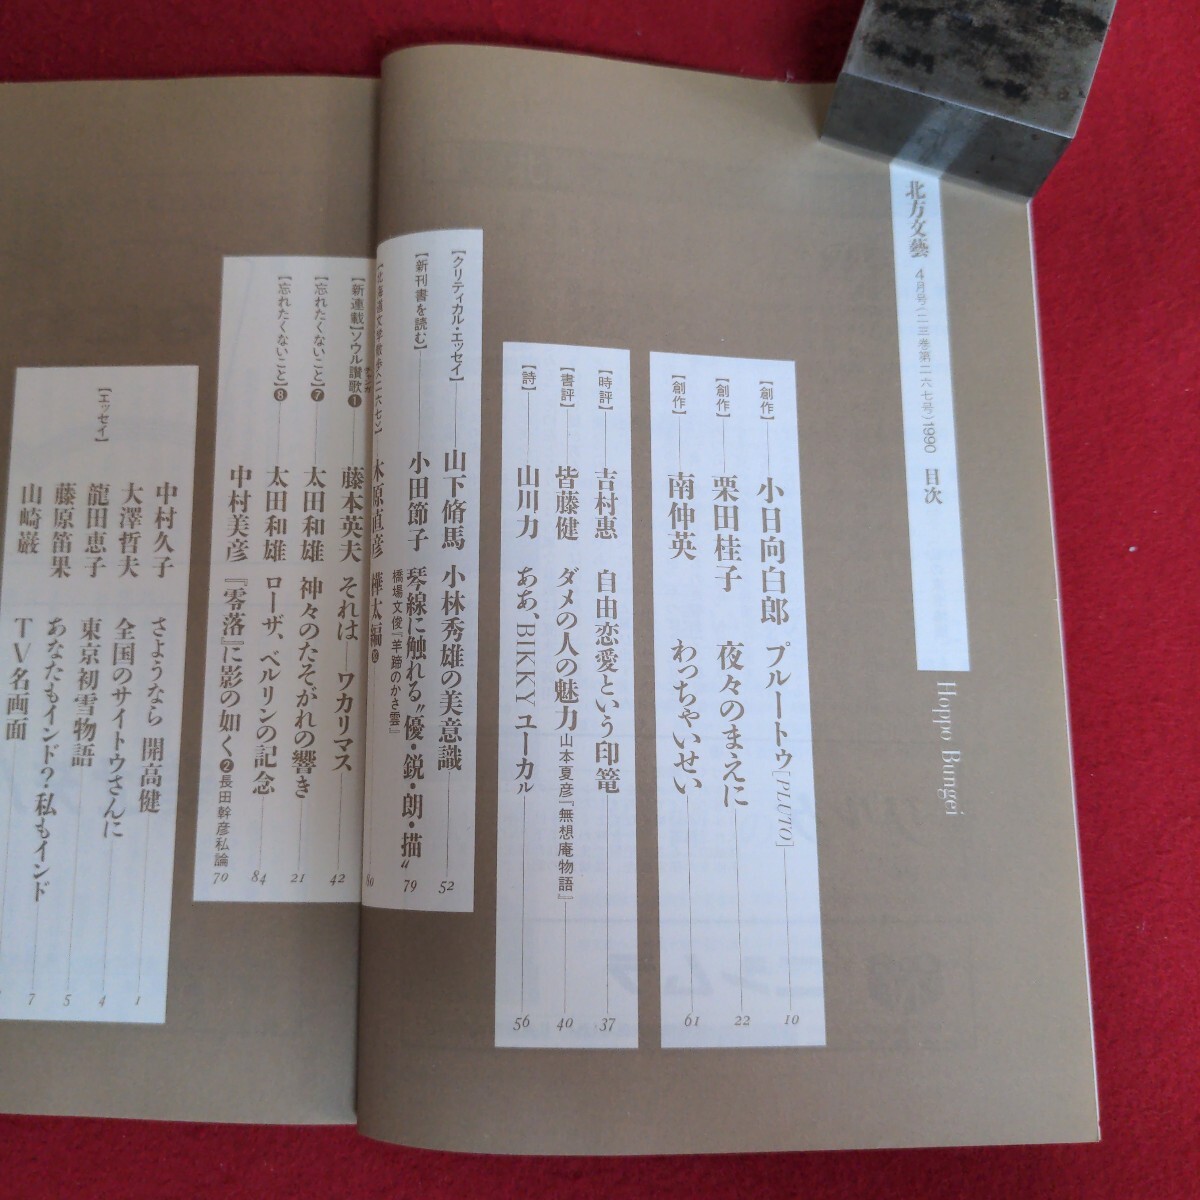 北方文藝 4月号(二三巻第二六七号)1990 目次
Hoppo Bungei
【創作】 小日向白郎 プルートゥ[PLUTO] 10
【創作】 栗田桂子 夜々のまえに 22
【創作】 南伸英 わっちゃいせい 61
【時評】 吉村惠 自由恋愛という印篭 37
【書評】 皆藤健 ダメの人の魅力 山本夏彦『無想庵物語』 40
【詩】 山川力 ああ、BIKKYユーカㇻ 56
【クリティカル・エッセイ】 山下脩馬 小林秀雄の美意識 52
【新刊書を読む】 小田節子 琴線に触れる〝優・鋭・朗・描〟 79
橋場文俊『羊蹄のかさ雲』
【北海道文学散歩〈二六七〉】 木原直彦 樺太編 80
【新連載】ソウル讃歌❶ 藤本英夫 それは──ワカリマス 42
【忘れたくないこと】❼ 太田和雄 神々のたそがれの響き 21
【忘れたくないこと】❽ 太田和雄 ローザ、ベルリンの記念 84
中村美彦 『零落』に影の如く❷長田幹彦私論 70
【エッセイ】
中村久子 さようなら 開高健 1
大澤哲夫 全国のサイトウさんに 4
龍田恵子 東京初雪物語 5
藤原笛果 あなたもインド?私もインド 7
山崎巌 TV名画面